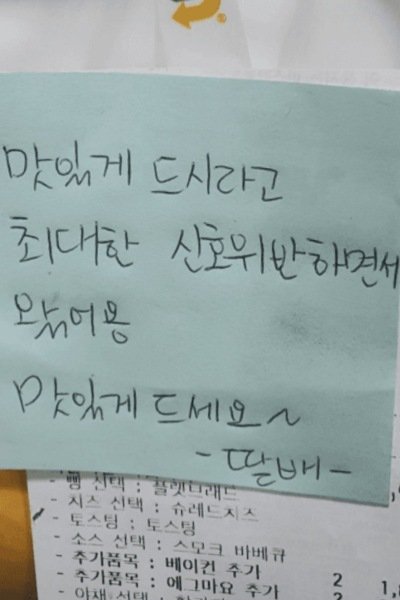 맛있게 드시라고
최대한 신호위반하면서
왔어용
맛있게 드세요~
-딸배-
- 빵 선택 : 플랫브래드
- 치즈 선택 : 슈레드치즈
- 토스팅 : 토스팅
- 소스 선택 : 스모크 바베큐
- 추가품목 : 베이컨 추가
- 추가품목 : 에그마요 추가 2
- 야채 선택 :